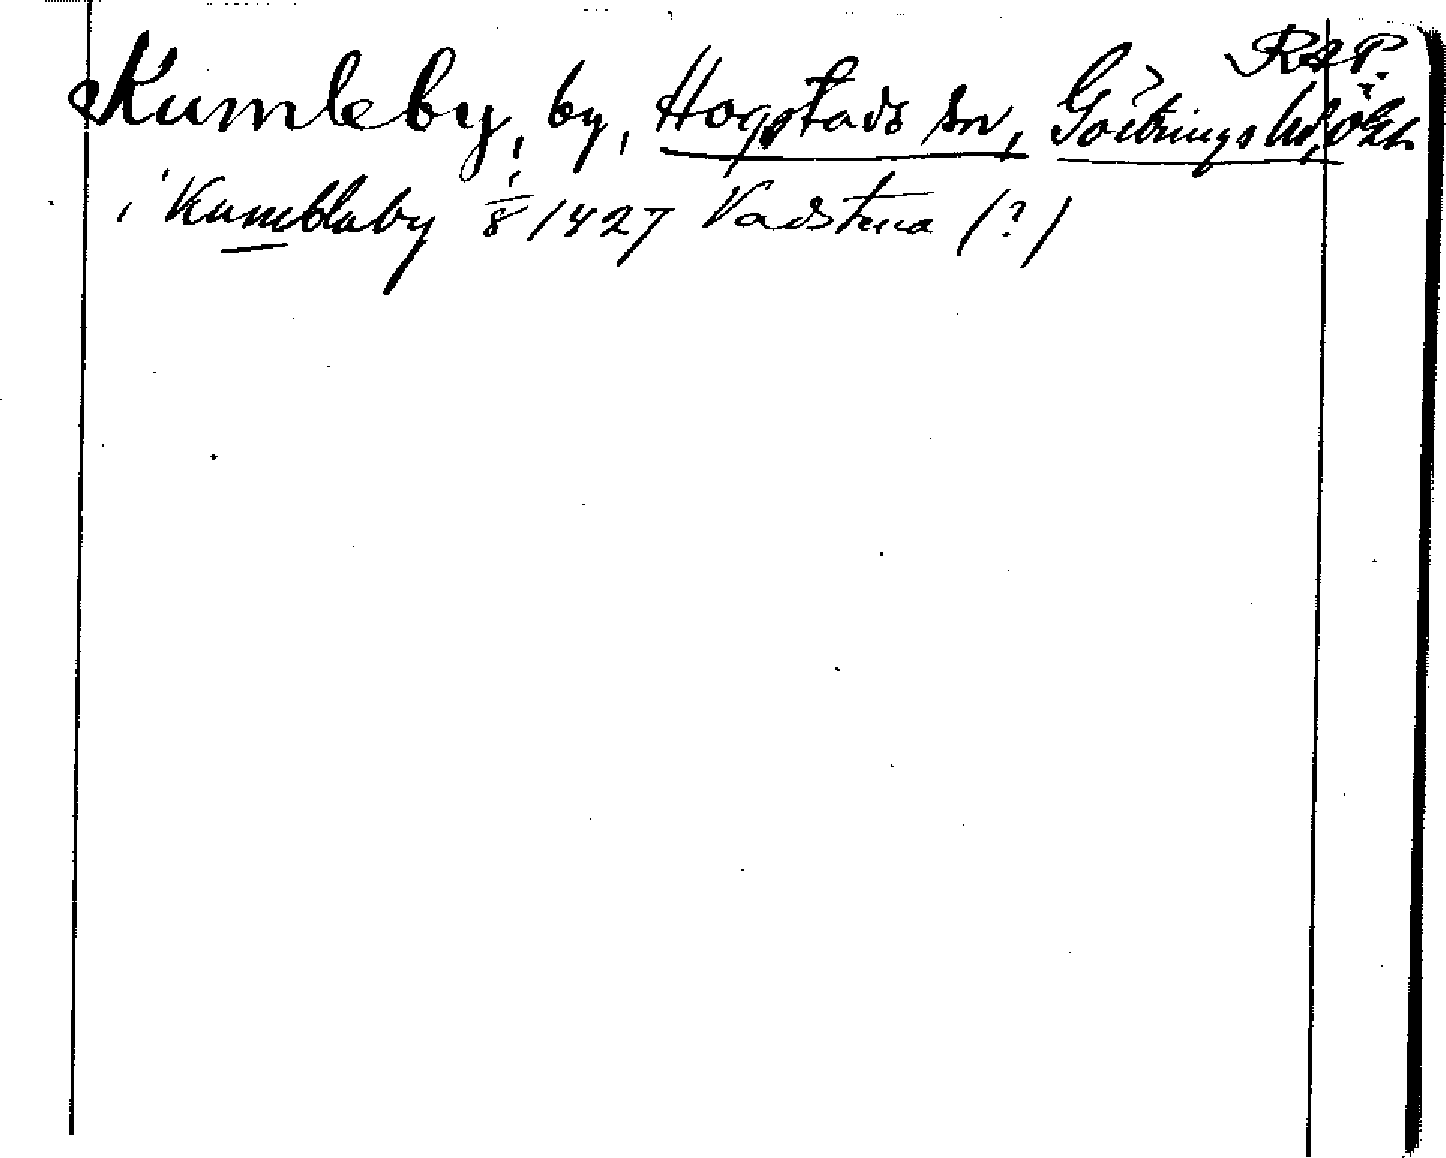 RAP.
Kumleby, by, Hogstads sn, Göstrings hd, Ögl.
i Kumblaby 1/8 1427 Vadstena (?)